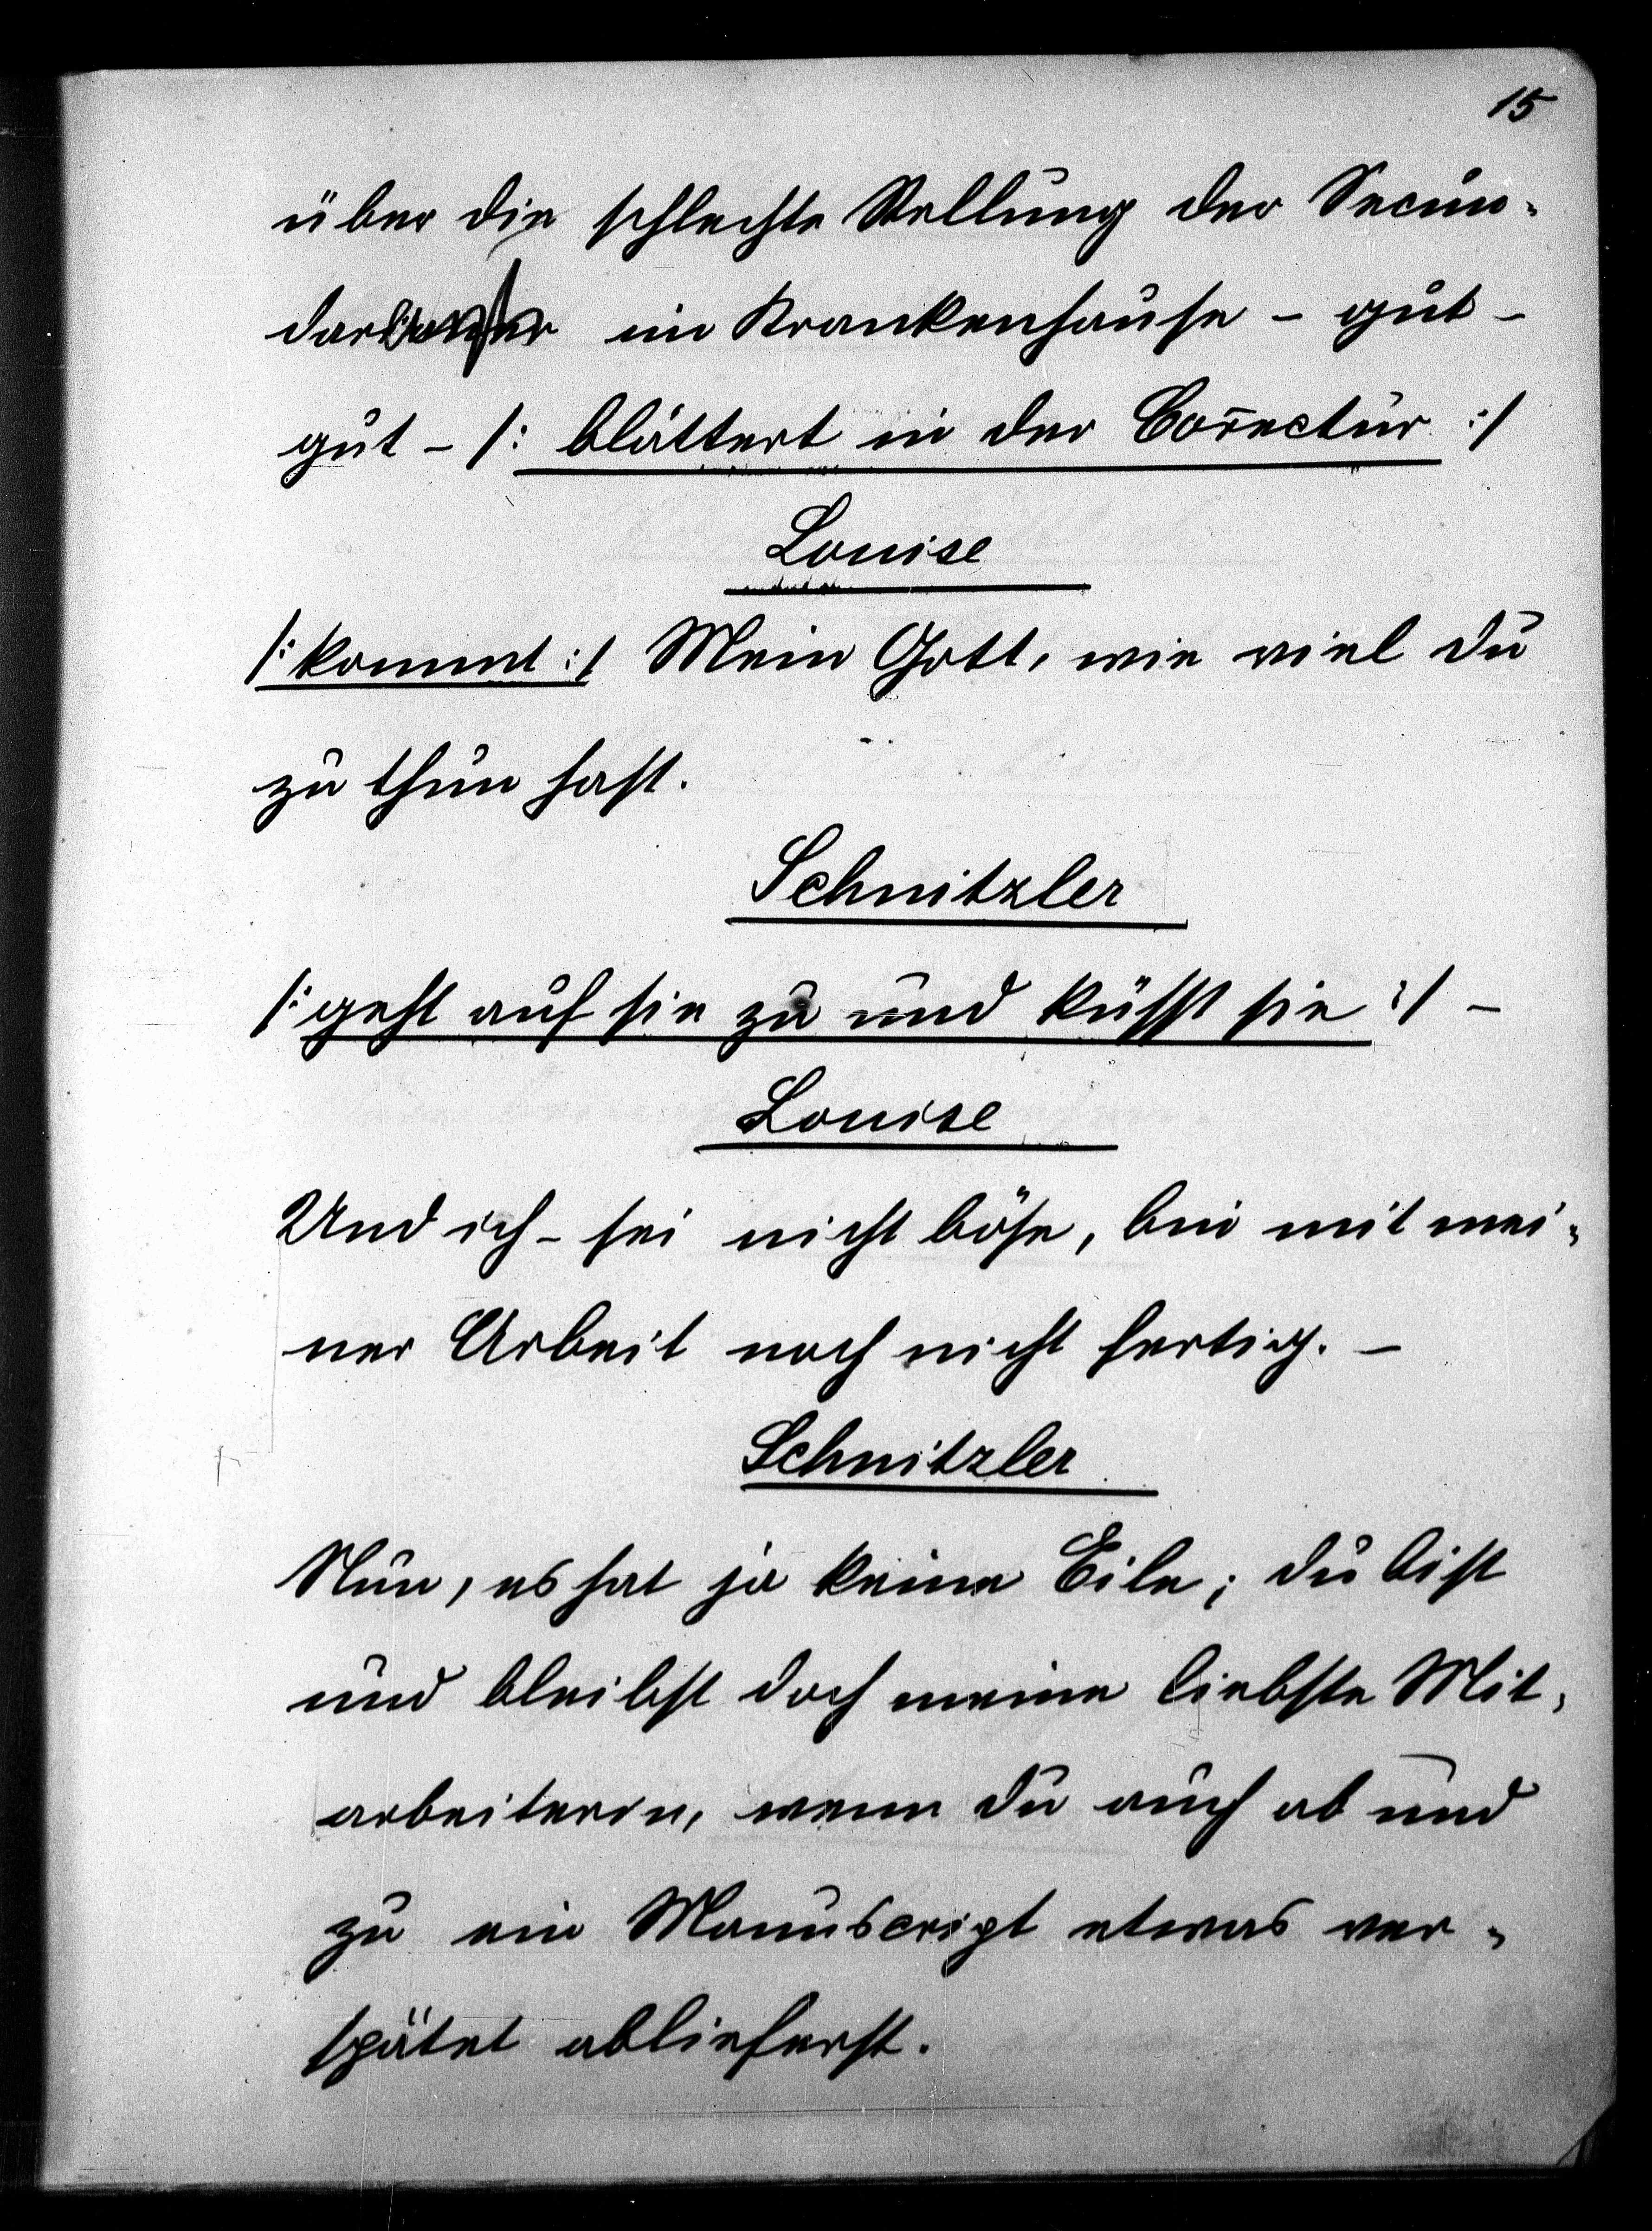 15
über die schlechte Stellung der Secun-
dar im Krankenhause – gut –
gut – /: blättert in der Correctur :/
Louise
/: kommt :/ Mein Gott, wie viel du
zu thun hast.
Schnitzler
/: geht auf sie zu und küsst sie :/ –
Louise
Und ich – sei nicht böse, bin mit mei-
ner Arbeit noch nicht fertig. –
Schnitzler
Nun, es hat ja keine Eile; du bist
und bleibst doch meine liebste Mit-
arbeiterin, wenn du auch ab und
zu ein Manuscript etwas ver-
spätet ablieferst.